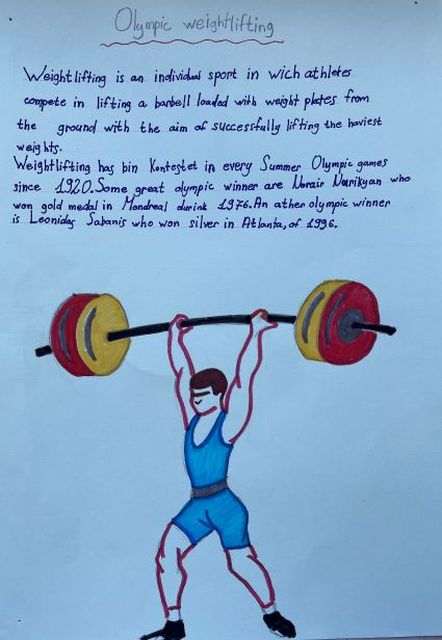 Olympic weightlifting
Weightlifting is an individual sport in wich athletes
compete in lifting a barbell loaded with weight plates from
the ground with the aim of successfully lifting the haviest
weights.
Weightlifting has bin Kontestet in every Summer Olympic games
since 1920. Some great olympic winner are Norair Nurikyan who
won gold medal in Mondreal durink 1976. An ather olympic winner
is Leonidas Sabanis who won silver in Atlanta, of 1996.